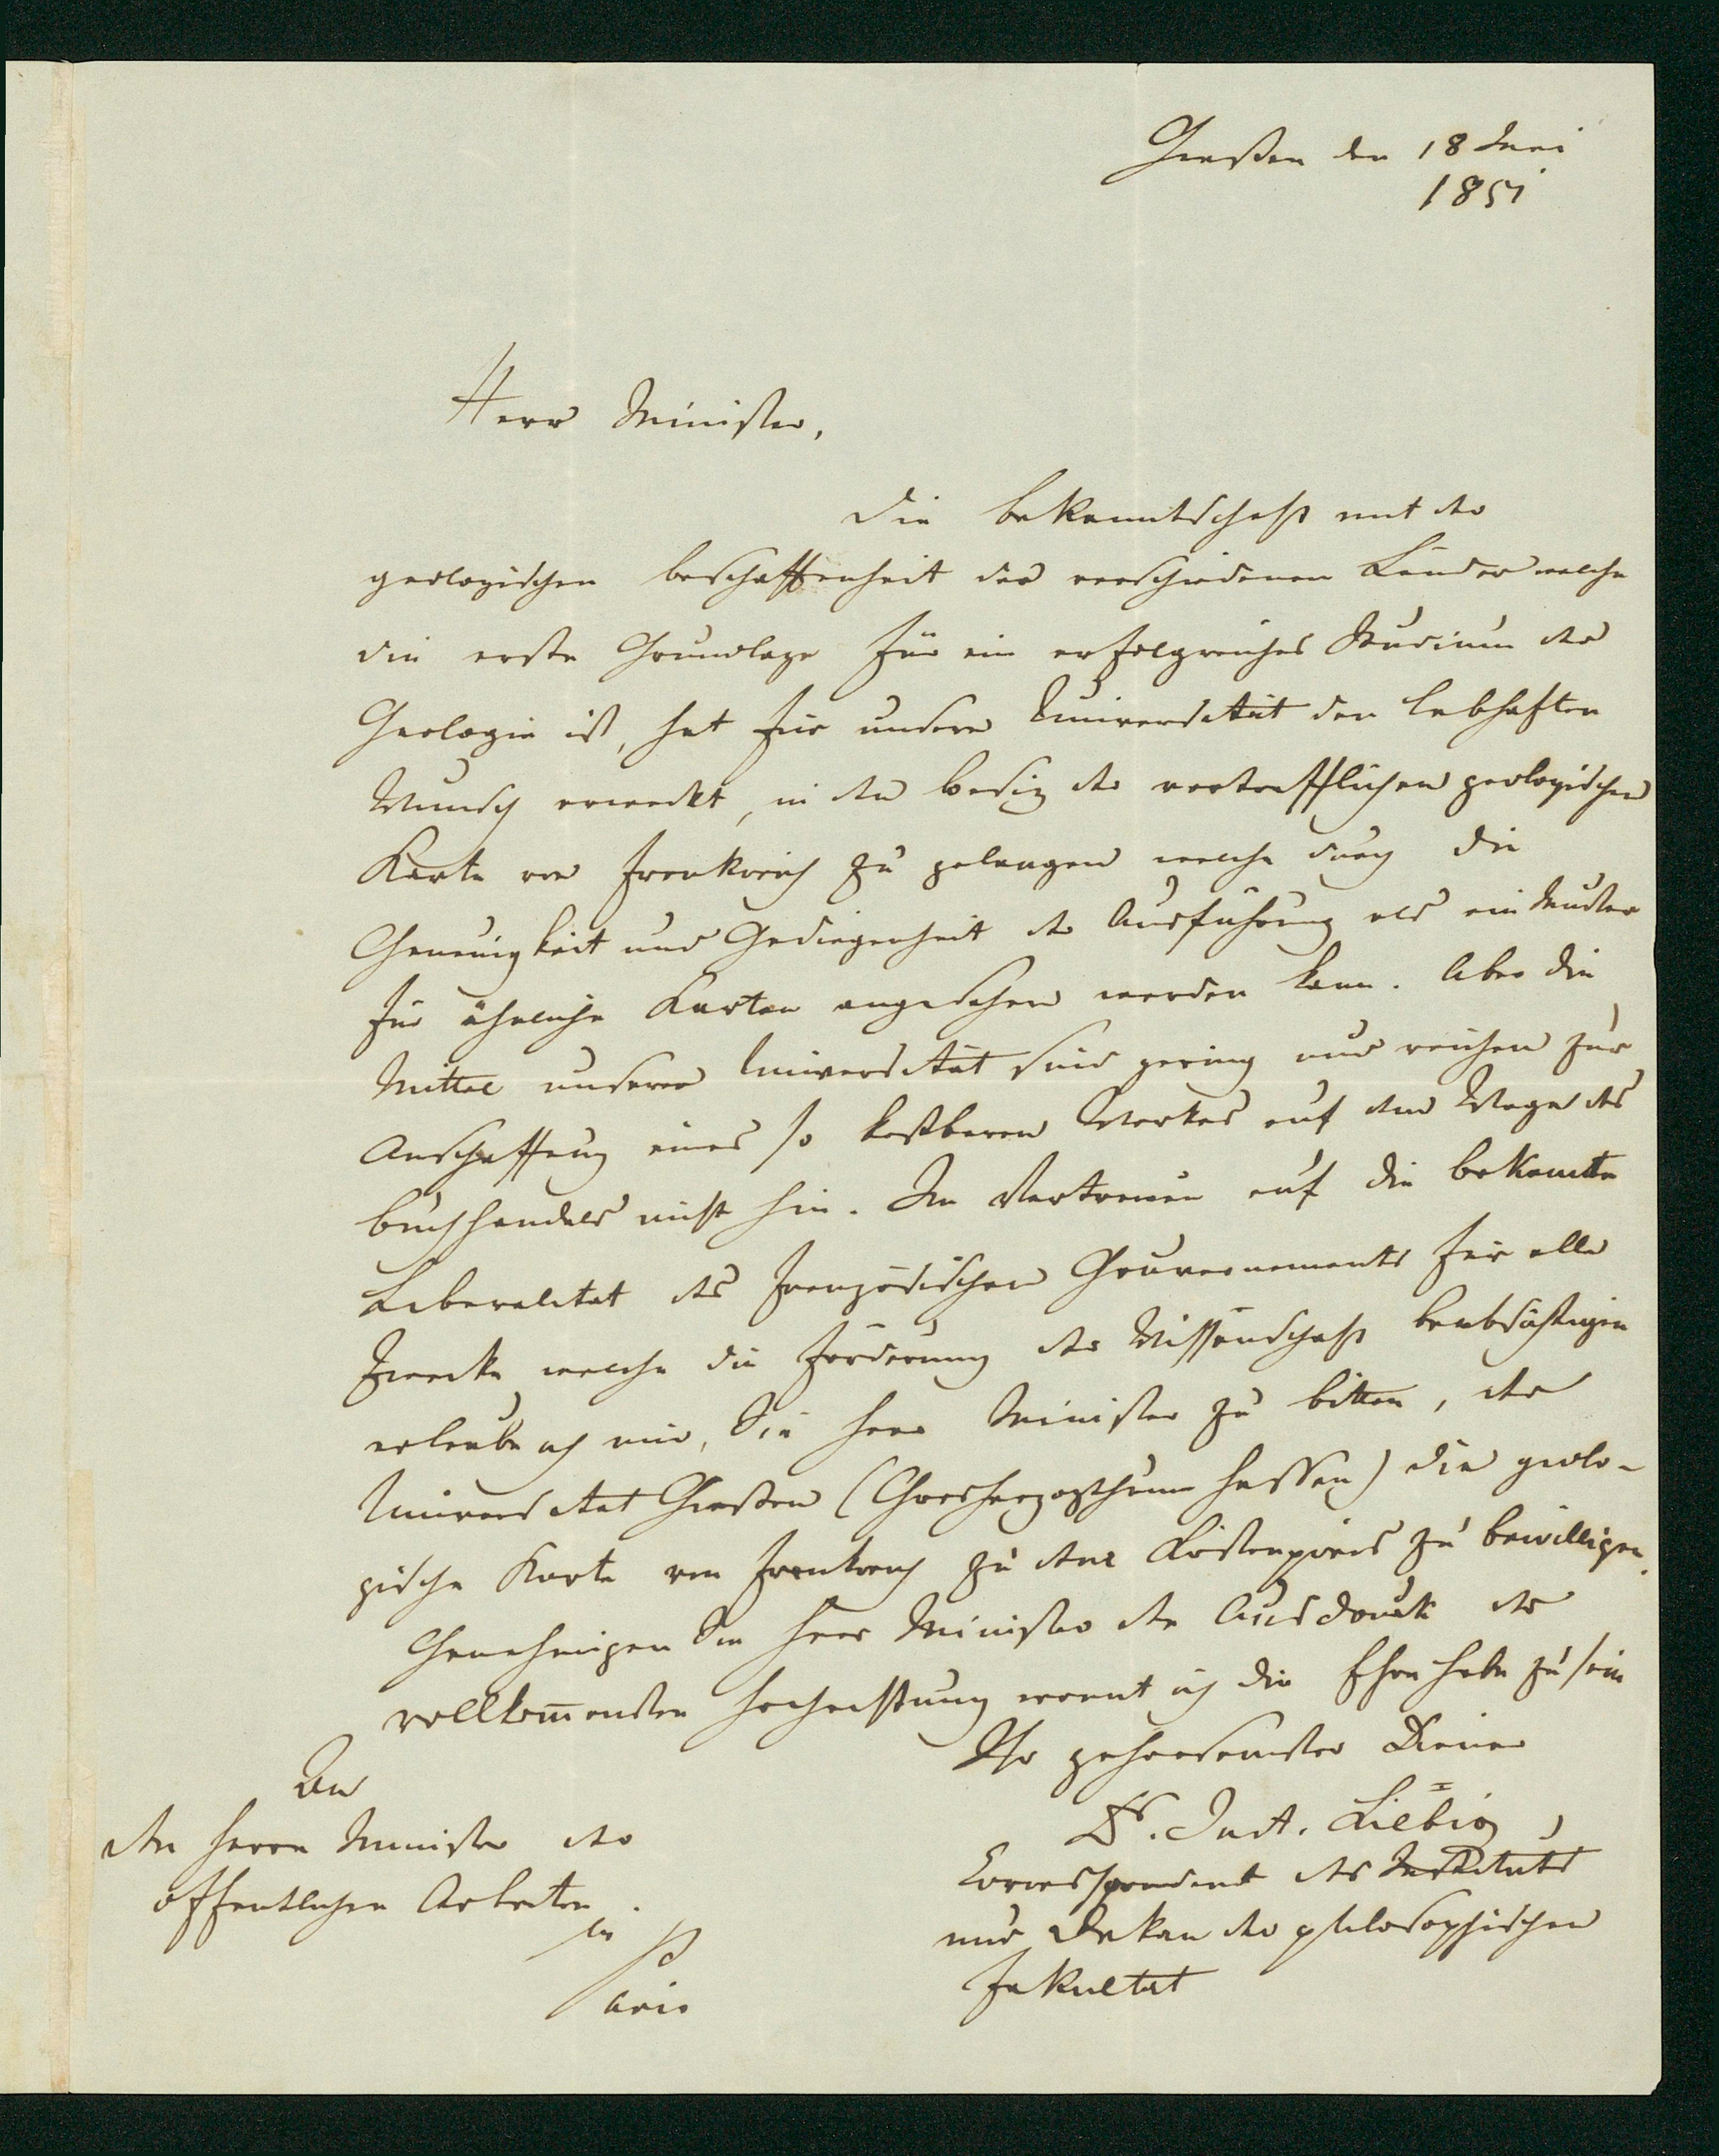 Giessen den 18 Juni
1851
Herr Minister,
Die Bekanntschaft mit der
geologischen Beschaffenheit der verschiedenen Länder welche
die erste Grundlage für ein erfolgreiches Studium der
Geologie ist, hat für unsere Universität den lebhaften
Wunsch erweckt, in den Besiz der vortrefflichen geologischen
Karte von Frankreich zu gelangen welche durch die
Genauigkeit und Gediegenheit der Ausführung als ein Muster
für ähnliche Karten angesehen werden kann. Aber die
Mittel unserer Universität sind gering und reichen zur
Anschaffung eines so kostbaren Werkes auf dem Wege des
Buchhandels nicht hin. Im Vertrauen auf die bekannte
Liberalitat des französischen Gouvernements für alle
Zwecke welche die Förderung der Wissenschaft beabsichtigen
erlaube ich mir, Sie Herr Minister zu bitten, der
Universitat Giessen (Grosherzogthum Hessen) die geolo-
gische Karte von Frankreich zu dem Kostenpreis zu bewilligen.
Genehmigen Sie Herr Minister den Ausdruck der
vollkom̅ensten Hochachtung womit ich die Ehre habe zu sein
Ihr gehorsamster Diener
Dr. Just. Liebig
Correspondent des Instituts
und Dekan der philosophischen
Fakultat
An
den Herrn Minister der
öffentlichen Arbeiten
in
Paris